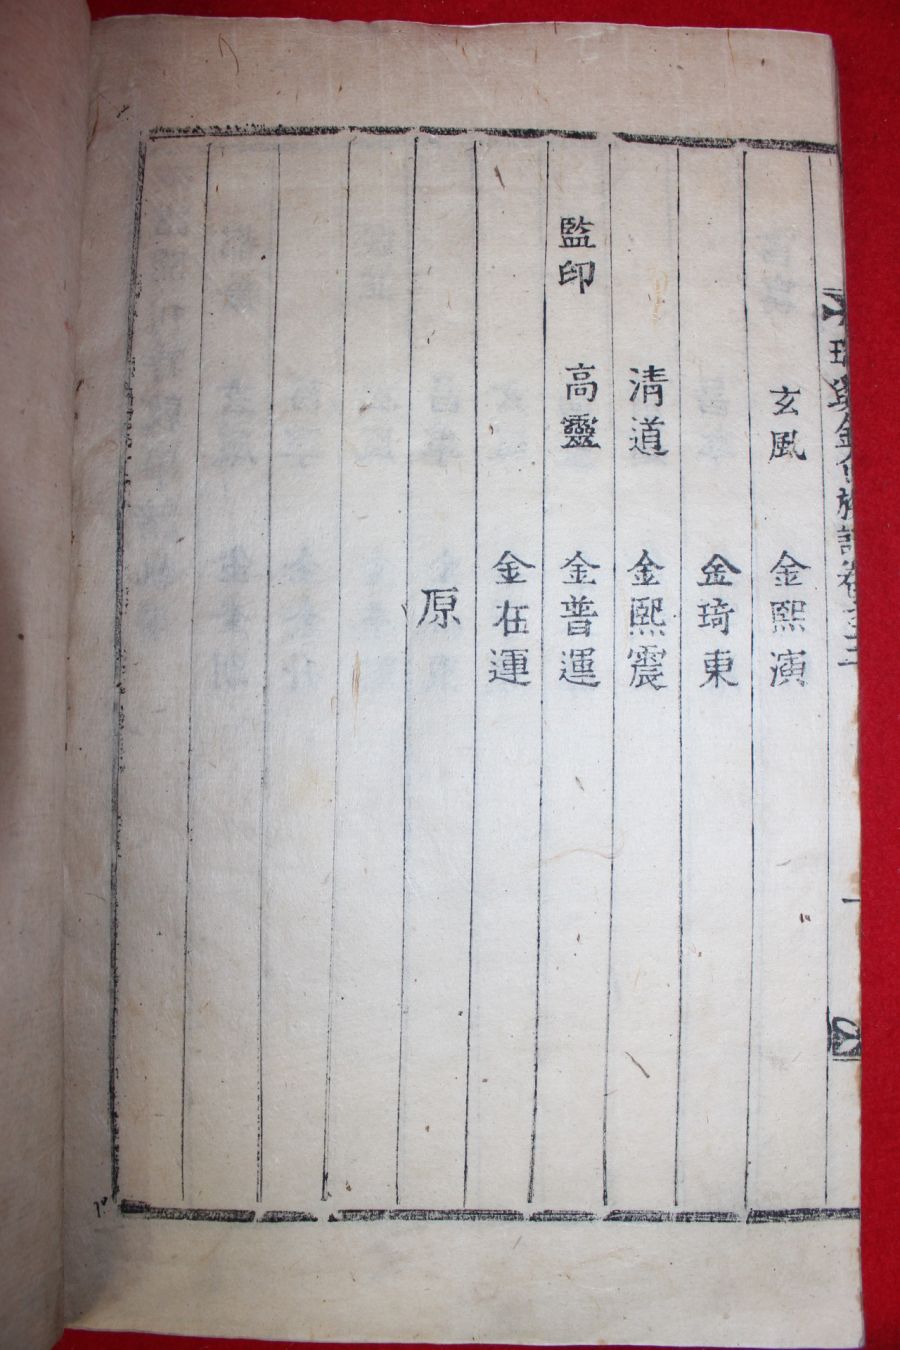 瑞興金氏族譜卷之二
一
玄風 金熙演
金琦東
清道 金熙震
監印 高靈 金普運
金在運
原